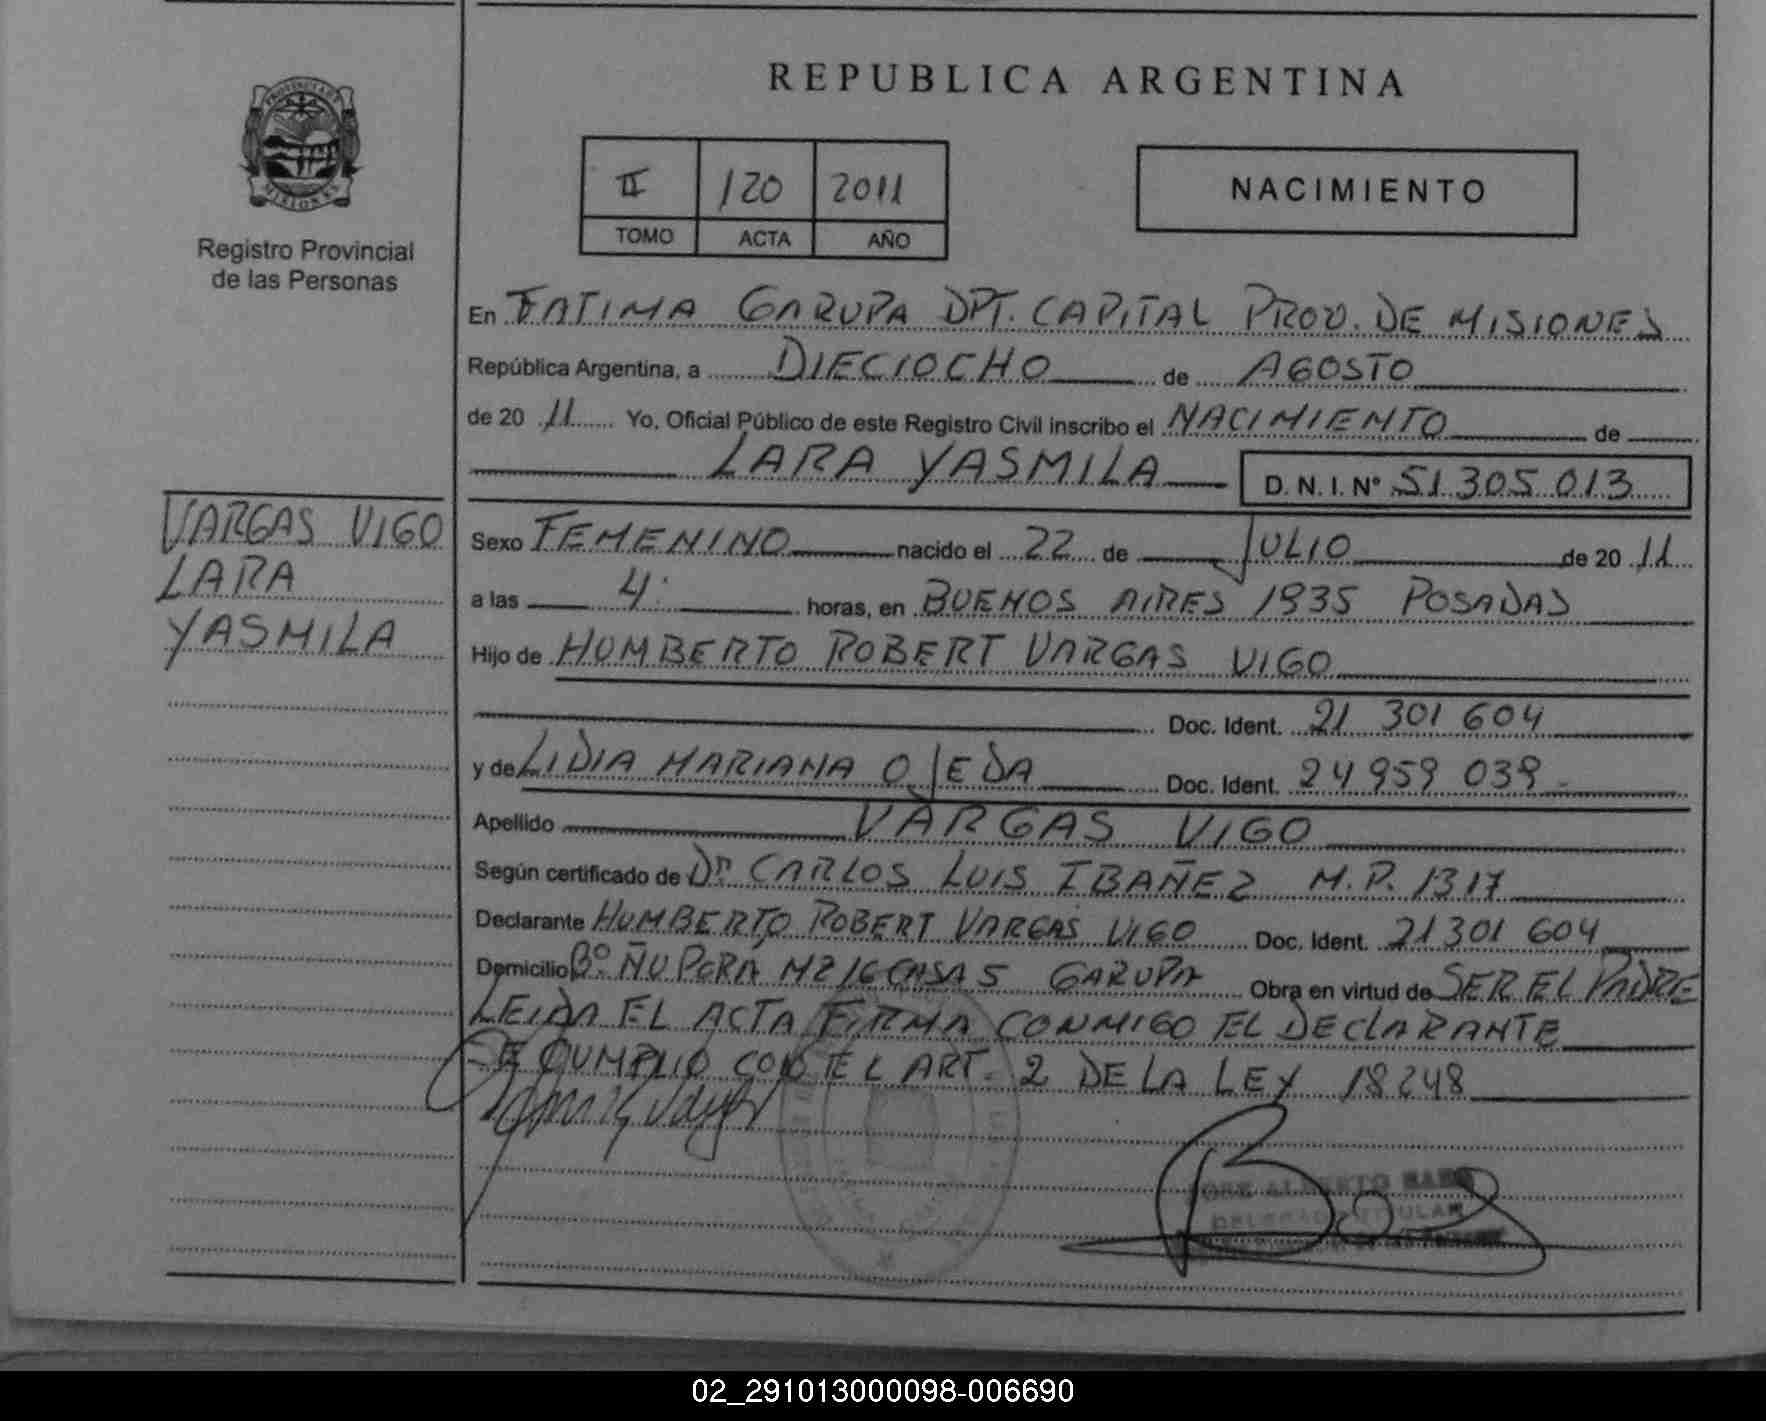 REPUBLICA ARGENTINA
PROVINCIA DE
MISIONES
Registro Provincial
de las Personas
II 120 2011
TOMO ACTA AÑO
NACIMIENTO
En FATIMA GARUPA DPT. CAPITAL PROV. DE MISIONES
República Argentina, a DIECIOCHO de AGOSTO
de 20 11 Yo, Oficial Público de este Registro Civil inscribo el NACIMIENTO de
LARA YASMILA D. N. I. N° 51.305.013
VARGAS VIGO
LARA
YASMILA
Sexo FEMENINO nacido el 22 de JULIO de 20 11
a las 4: horas, en BUENOS AIRES 1935 POSADAS
Hijo de HUMBERTO ROBERT VARGAS VIGO
Doc. Ident. 21 301 604
y de LIDIA MARIANA OJEDA Doc. Ident. 24 959 039
Apellido VARGAS VIGO
Según certificado de Dr. CARLOS LUIS IBAÑEZ M.P. 1317
Declarante HUMBERTO ROBERT VARGAS VIGO Doc. Ident. 21 301 604
Domicilio B° ÑU PORA MZ 16 CASA 5 GARUPA Obra en virtud de SER EL PADRE
LEIDA EL ACTA FIRMA CONMIGO EL DECLARANTE
SE CUMPLIO CON EL ART. 2 DE LA LEY 18248
JOSE ALBERTO
DELEGADO TITULAR
02_291013000098-006690